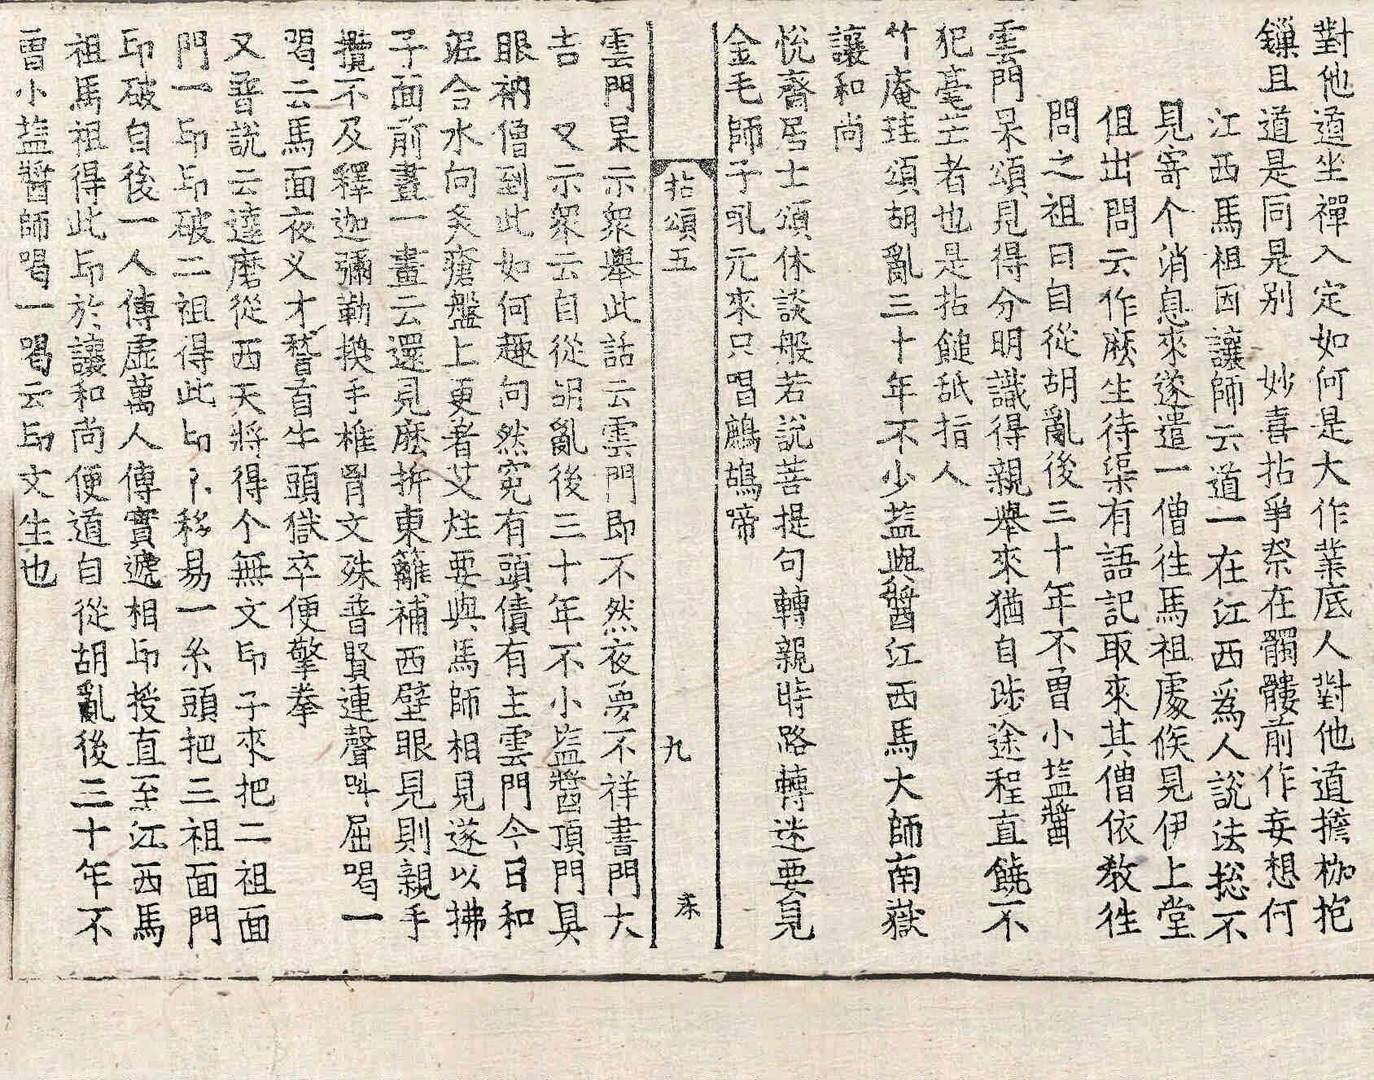 對他道坐禪入定如何是大作業底人對他道擔枷抱
鏁且道是同是别　妙喜拈爭柰在髑髏前作妄想何
江西馬祖因讓師云道一在江西爲人說法揔不
見寄个消息來遂遣一僧徃馬祖處俟見伊上堂
但出問云作麽生待渠有語記取來其僧依敎徃
問之祖曰自從胡亂後三十年不曾小䀋醬
雲門杲頌見得分明識得親舉來猶自昧途程直饒不
犯毫芒者也是拈鎚舐指人
竹庵珪頌胡亂三十年不少䀋與醬江西馬大師南嶽
讓和尚
悅齋居士頌休談般若說菩提句轉親時路轉迷要見
金毛師子吼元來只唱鷓鴣啼
拈頌五
九
雲門杲示衆舉此話云雲門即不然夜夢不祥書門大
吉　又示衆云自從胡亂後三十年不小䀋醬頂門具
眼衲僧到此如何趣向然冤有頭債有主雲門今日和
泥合水向炙瘡盤上更着艾炷要與馬師相見遂以拂
子面前畫一畫云還見麽拆東籬補西壁眼見則親手
攬不及釋迦彌勒換手椎胷文殊普賢連聲呌屈喝一
喝云馬面夜叉才稽首牛頭獄卒便擎拳
又普說云達磨從西天將得个無文印子來把二祖面
門一印印破二祖得此印不移易一糸頭把三祖面門
印破自後一人傳虛萬人傳實遞相印授直至江西馬
祖馬祖得此印於讓和尚便道自從胡亂後三十年不
曾小䀋醬師喝一喝云印文生也